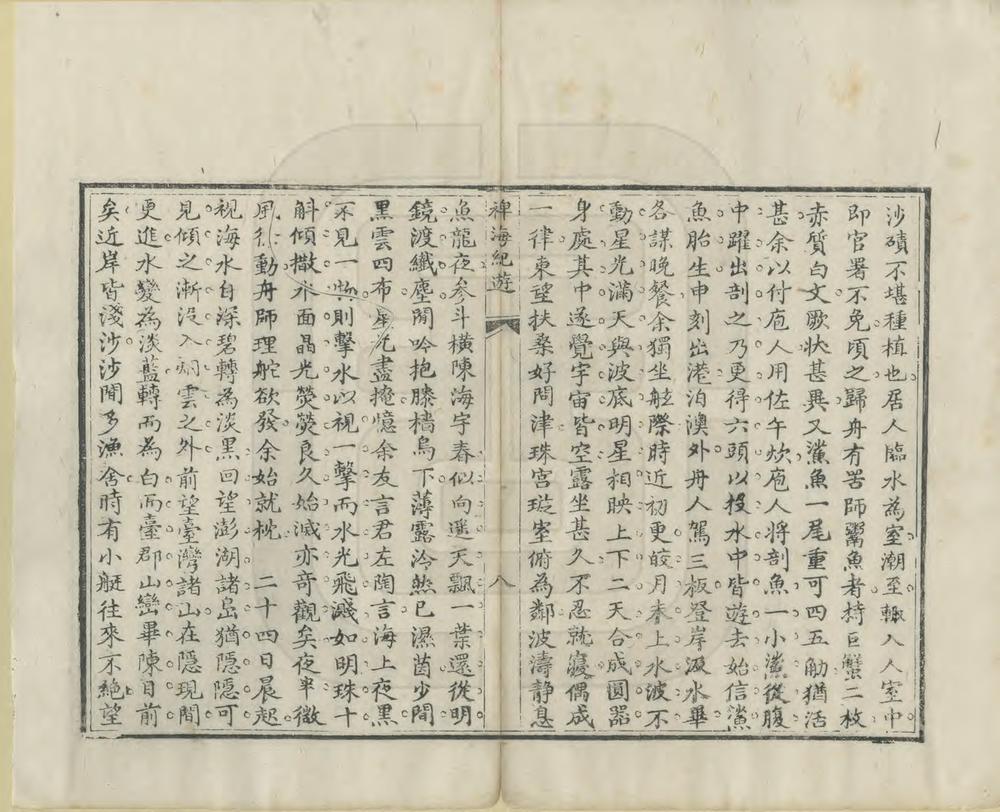 沙磧不堪種植也居人臨水為室潮至輙入人室中
即官署不免頃之歸舟有罟師鬻魚者持巨蟹二枚
赤質白文厥狀甚異又鯊魚一尾重可四五觔猶活
甚余以付庖人用佐午炊庖人將剖魚一小鯊從腹
中躍出剖之乃更得六頭以投水中皆遊去始信鯊
魚胎生申刻出港泊澳外舟人駕三板登岸汲水畢
各謀晚餐余獨坐舷際時近初更皎月未上水波不
動星光滿天與波底明星相映上下二天合成圓器
身處其中遂覺宇宙皆空露坐甚久不忍就寢偶成
一律東望扶桑好問津珠宮璇室俯為鄰波濤靜息
裨海紀遊
八
魚龍夜參斗橫陳海宇春似向遥天飄一葉還從明
鏡渡纖塵閒吟抱膝檣烏下薄露泠然已濕茵少間
黑雲四布星光盡掩憶余友言君左陶言海上夜黑
不見一物則擊水以視一擊而水光飛濺如明珠十
斛傾撒水面晶光熒熒良久始滅亦奇觀矣夜半微
風動舟師理舵欲發余始就枕 二十四日晨起
視海水自深碧轉為淡黑回望澎湖諸島猶隱隱可
見傾之漸沒入烟雲之外前望臺灣諸山在隱現間
更進水變為淡藍轉而為白而臺郡山巒畢陳目前
矣近岸皆淺沙沙間多漁舍時有小艇往來不絕望